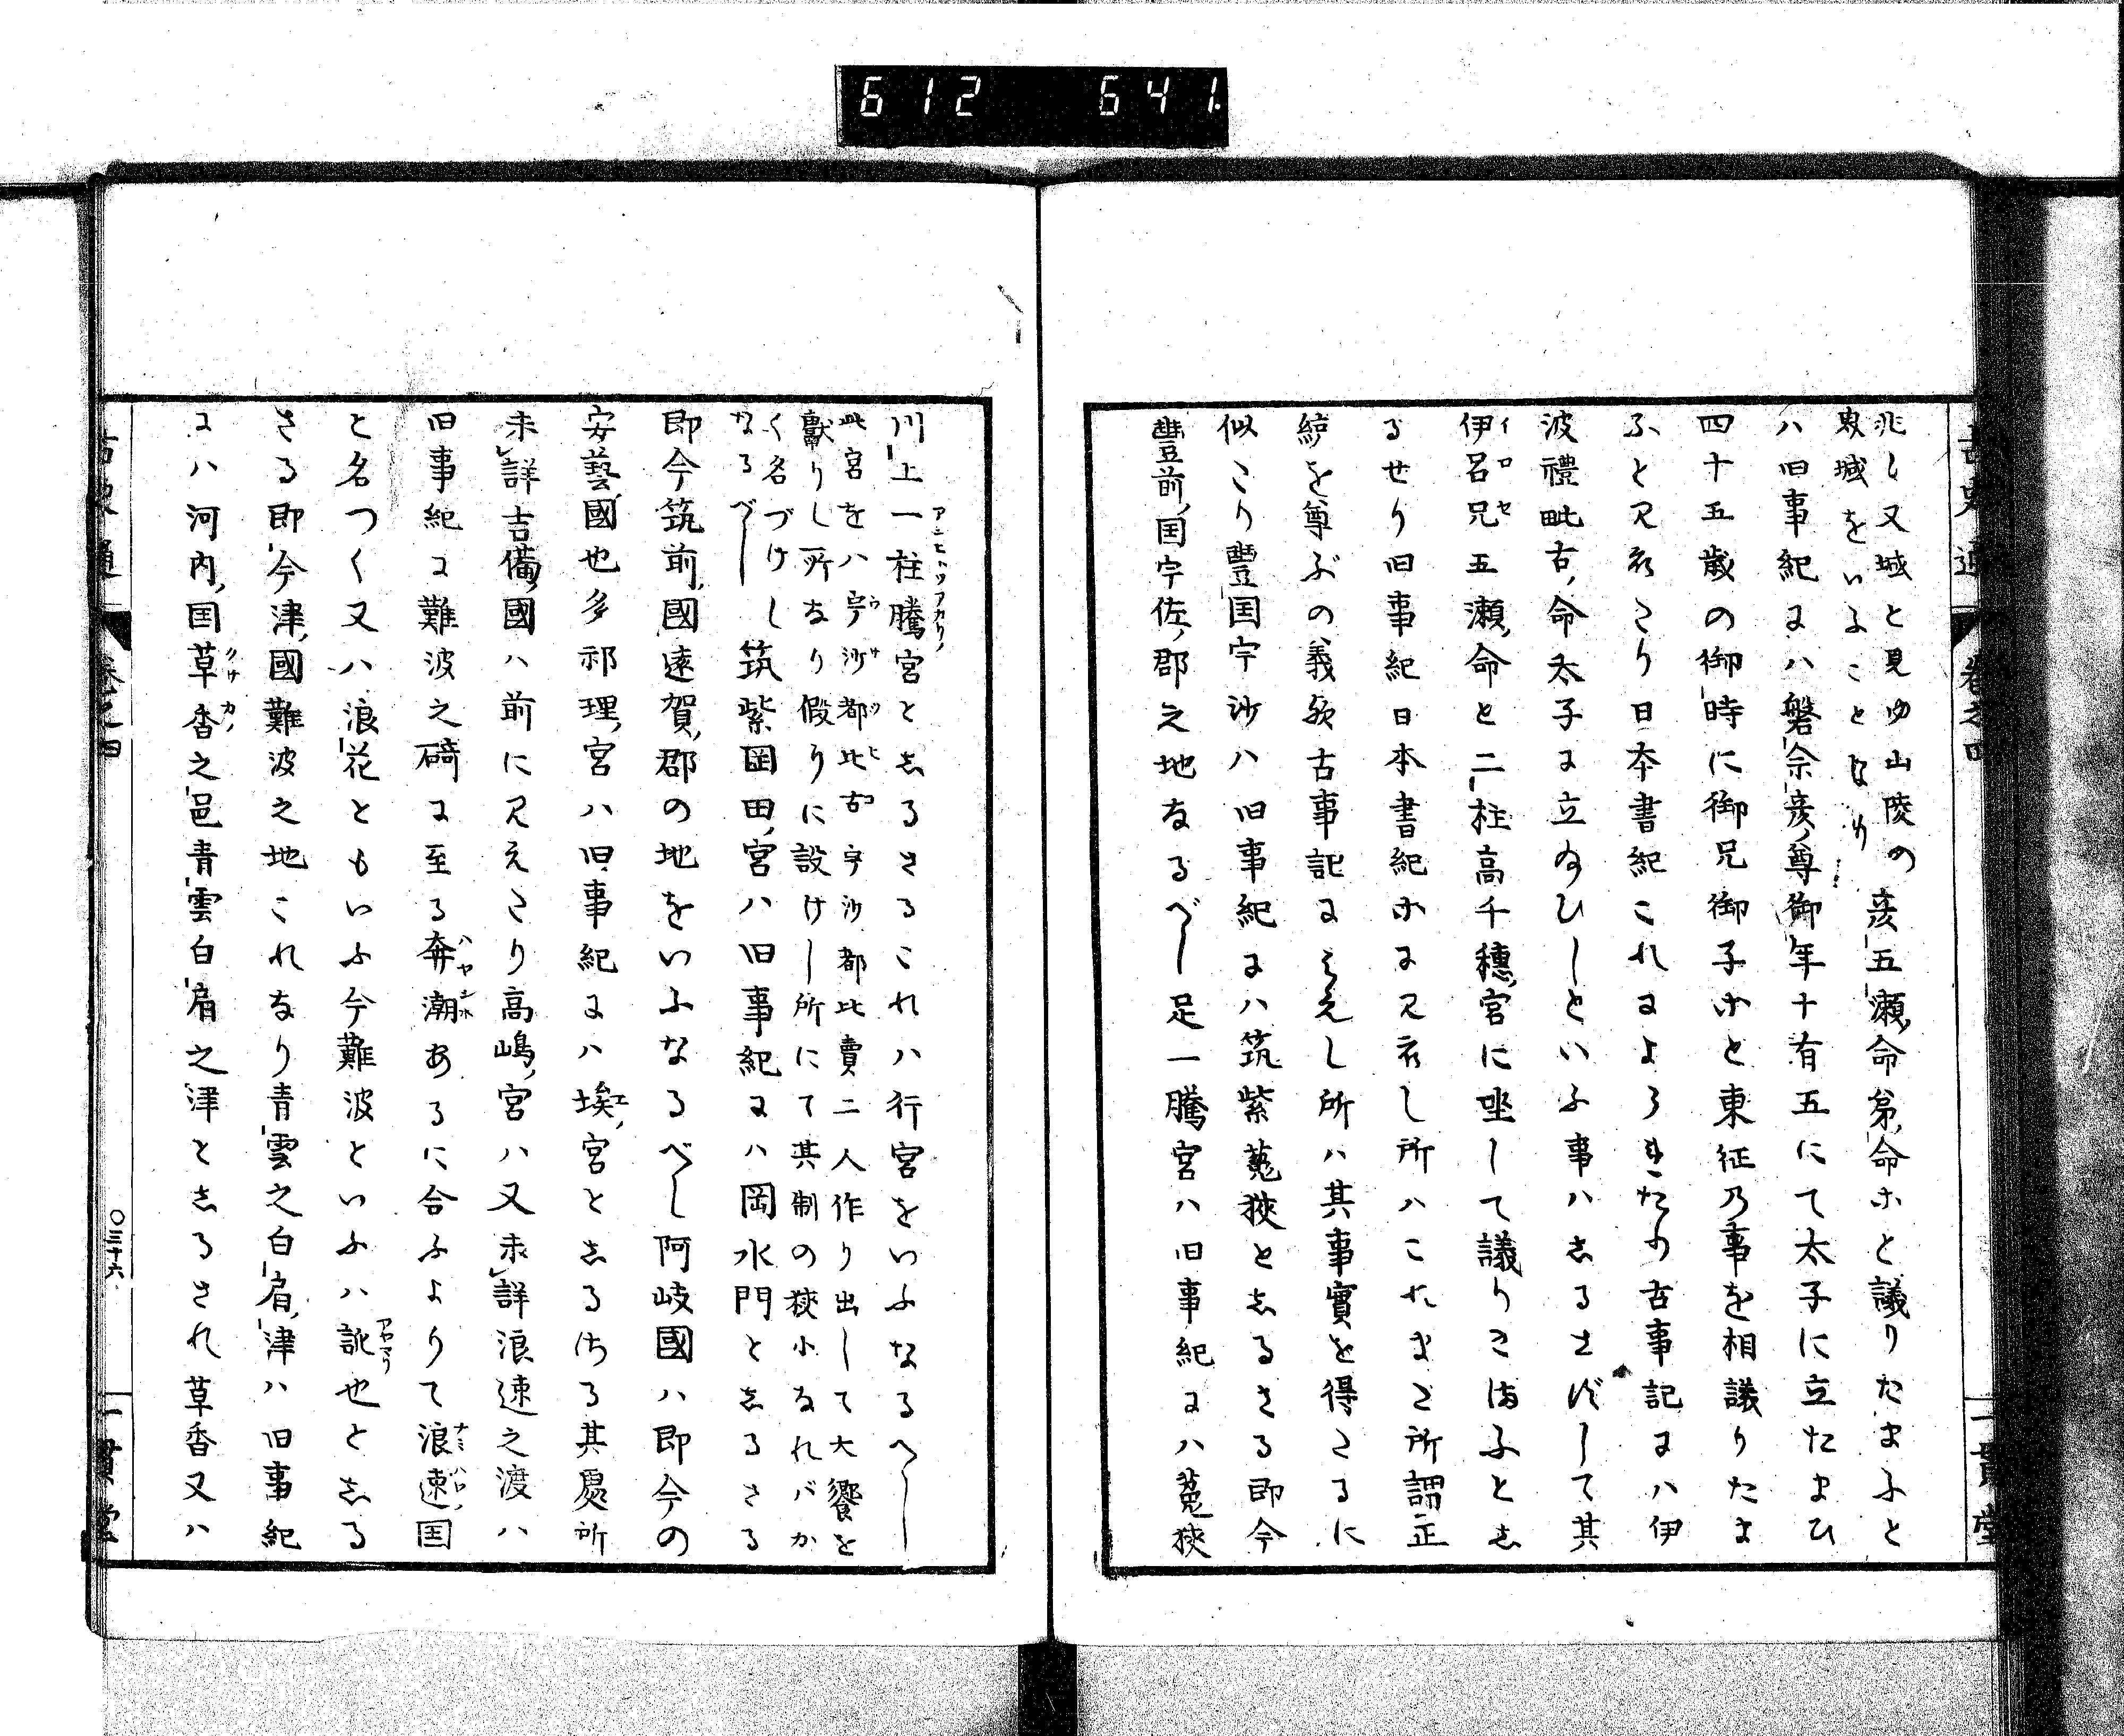 612 641.
兆し又城と見ゆ山陵の
東城をいふことなり
彦五瀬命第命等と議りたまふと
ハ旧事紀にハ磐余彦尊御年十有五にて太子に立たまひ
四十五歳の御時に御兄御子等と東征乃事を相議りたま
ふと見えたり日本書紀これによろしきなり古事記にハ伊
波禮毗古命太子に立給ひしといふ事ハしるさずして其
伊呂兄五瀬命と二柱高千穂宮に坐して議りたまふとし
るせり旧事紀日本書紀等に見えし所ハこたまこ所謂正
統を尊ぶの義歟古事記に見えし所ハ其事實を得たるに
似たり豐国宇沙ハ旧事紀にハ筑紫菟狭としるさる即今
豐前国宇佐郡之地なるべし足一騰宮ハ旧事紀にハ菟狭
古史通
巻之四
一貫堂
川上一柱騰宮としるさるこれハ行宮をいふなるへし
此宮をハ宇沙都比古宇沙都比賣二人作り出して大饗を
獻りし所なり假りに設けし所にて其制の狭小なれバか
く名づけし
なるべし
筑紫岡田宮ハ旧事紀にハ岡水門としるさる
即今筑前國遠賀郡の地をいふなるべし阿岐國ハ即今の
安藝國也多祁理宮ハ旧事紀にハ埃宮としるさる其處所
未詳吉備國ハ前に見えたり高嶋宮ハ又未詳浪速之渡ハ
旧事紀に難波之碕に至る奔潮あるに合ふよりて浪速国
と名つく又ハ浪花ともいふ今難波といふハ訛也としる
さる即今津國難波之地これなり青雲之白肩津ハ旧事紀
にハ河内国草香之邑青雲白肩之津としるされ草香又ハ
古史通
巻之四
〇三十六
一貫堂